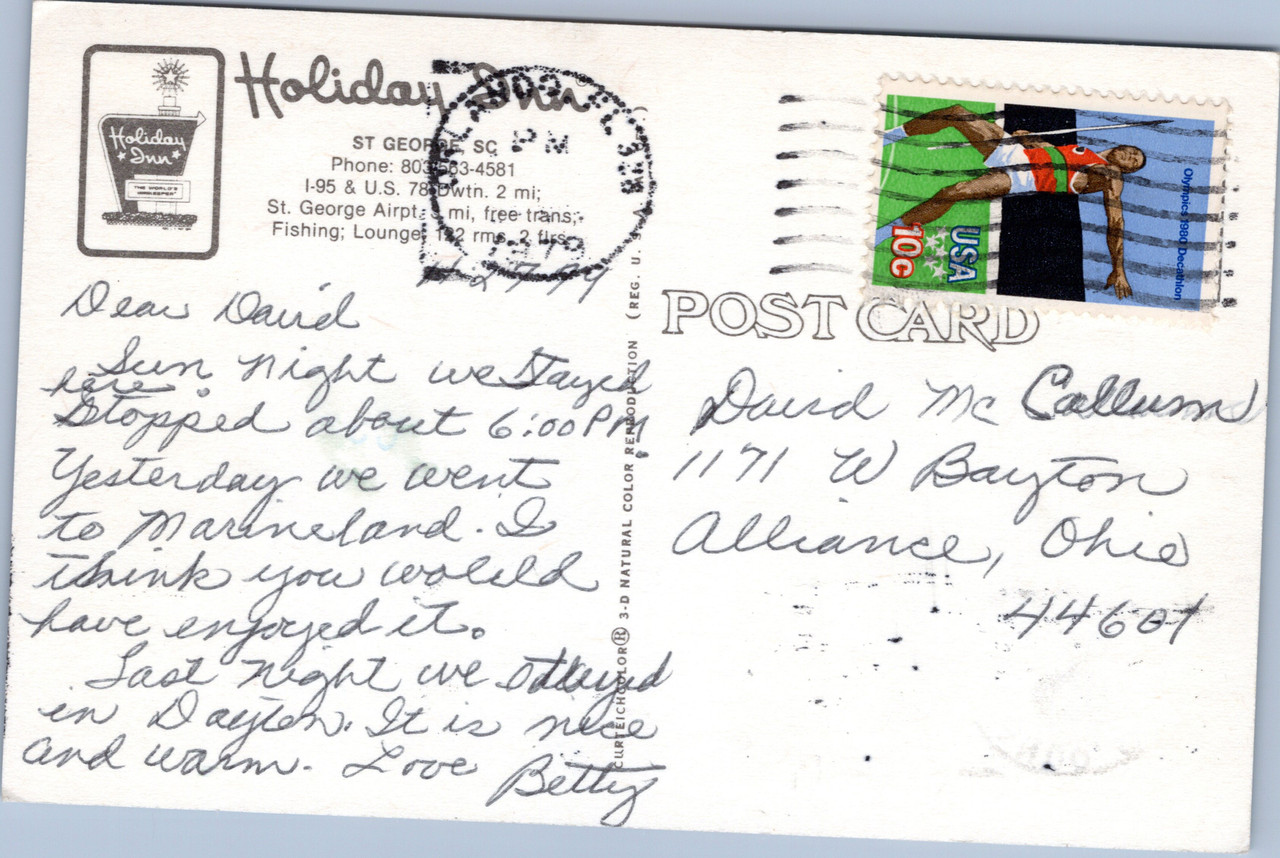 Holiday Inn
Holiday
Inn
THE WORLD'S
INNKEEPER
ST GEORGE, SC
Phone: 803/563-4581
I-95 & U.S. 78 Dwtn. 2 mi;
St. George Airpt. mi, free trans;
Fishing; Lounge; 122 rms, 2 flrs
PM
1979
11-27-79
Dear David
Sun Night we stayed
here.
Stopped about 6:00 PM
Yesterday we went
to Marineland. I
think you would
have enjoyed it.
Last Night we stayed
in Dayton. It is nice
and warm. Love
Betty
CURTEICHCOLOR® 3-D NATURAL COLOR REPRODUCTION (REG. U. S. A.
Olympics 1980 Decathlon
USA
10c
POST CARD
David Mc Callum
1171 W Bayton
Alliance, Ohio
44601